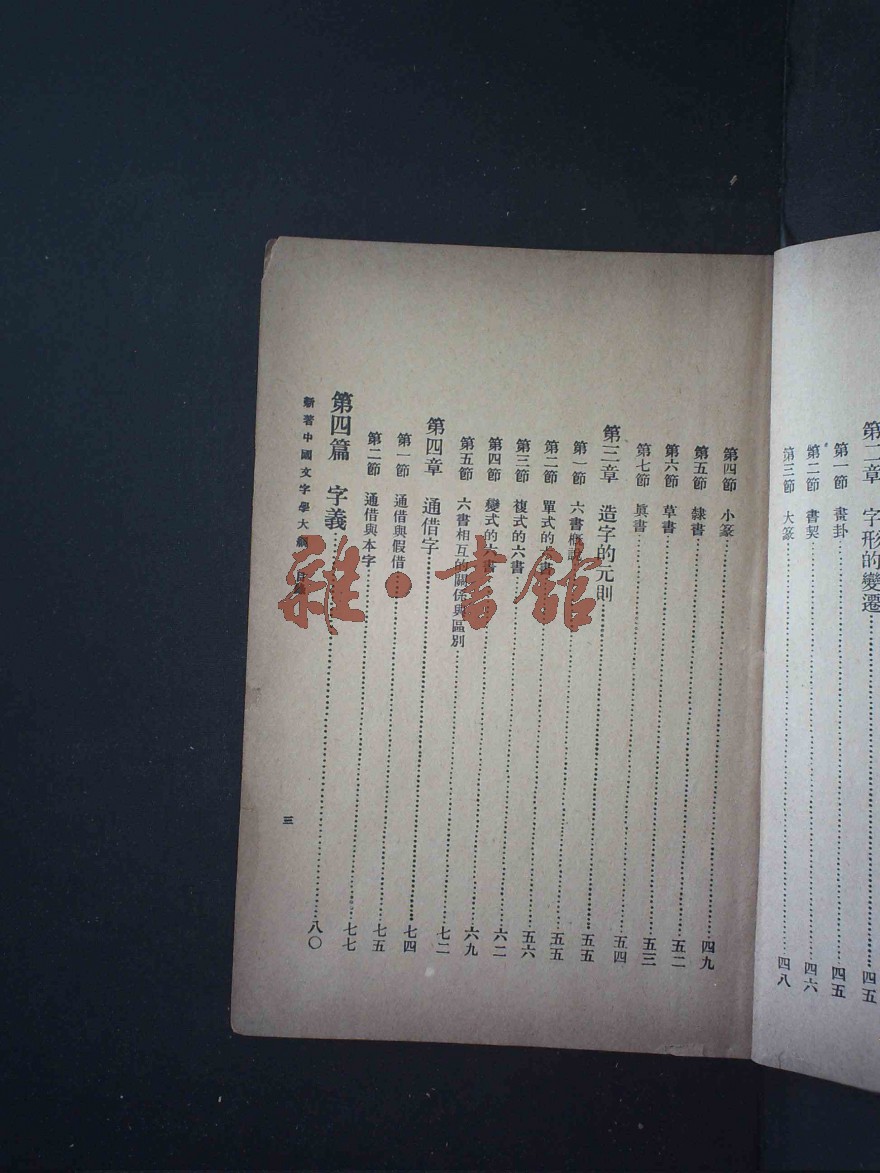 第二章 字形的變遷 四五
第一節 畫卦 四五
第二節 書契 四六
第三節 大篆 四八
第四節 小篆 四九
第五節 隸書 五二
第六節 草書 五三
第七節 眞書 五四
第三章 造字的元則 五五
第一節 六書概說 五五
第二節 單式的六書 五六
第三節 複式的六書 六二
第四節 變式的六書 六九
第五節 六書相互的關係與區別 七二
第四章 通借字 七四
第一節 通借與假借 七五
第二節 通借與本字 七七
第四篇 字義 八〇
新著中國文字學大綱 目錄
三
雜·書館